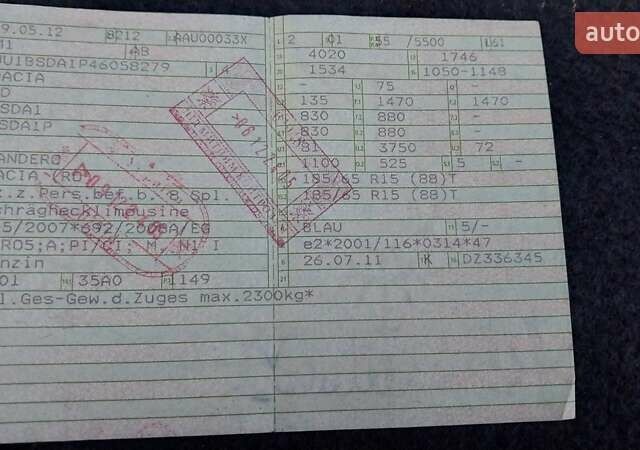 9.05.12 8212 AAU00033X 2 01 55 /5500 161
4020 1746
UU1BSDA1P46058279 4 1534 1050-1148
DACIA - 75 -
D 135 1470 1470
SDA1 830 880
SDA1P 830 880
81 3750 72
ANDERO 1100 525 5 -
ACIA (RO) 185/65 R15 (88)T
z.z.Pers.bef.b. 8 Spl. 185/65 R15 (88)T
chräghecklimousine
5/2007*692/2008A/EG BLAU 5/-
RO5;A;PI/CI; M, NI I e2*2001/116*0314*47
nzin 26.07.11 K DZ336345
01 35A0 149
l.Ges-Gew.d.Zuges max.2300kg*
auto